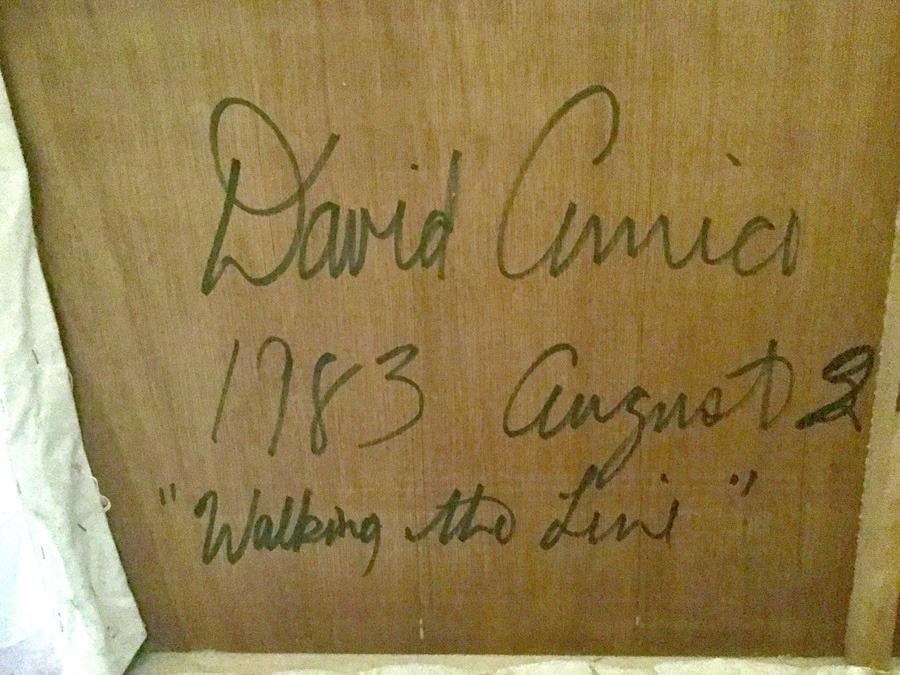 David Amico
1983 August 2
"Walking the Line"